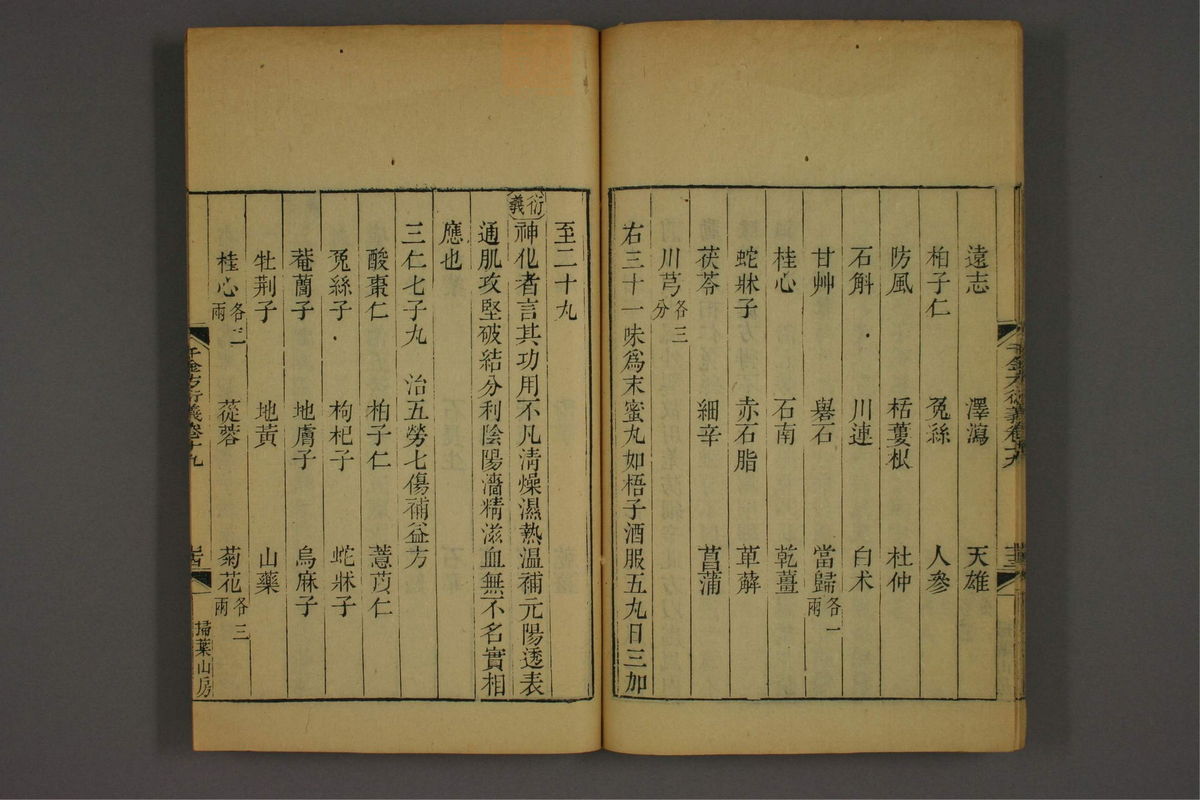 遠志 澤瀉 天雄
柏子仁 兔絲 人參
防風 栝蔞根 杜仲
石斛 川連 白术
甘艸 礜石 當歸各一兩
桂心 石南 乾薑
蛇牀子 赤石脂 萆薢
茯苓 細辛 菖蒲
川芎各三分
右三十一味爲末蜜丸如梧子酒服五丸日三加
至二十丸
衍義 神化者言其功用不凡淸燥濕熱温補元陽透表
通肌攻堅破結分利陰陽濇精滋血無不名實相
應也
三仁七子丸 治五勞七傷補益方
酸棗仁 柏子仁 薏苡仁
兔絲子 枸杞子 蛇牀子
菴䕡子 地膚子 烏麻子
牡荆子 地黃 山藥
桂心各二兩 蓯蓉 菊花各三兩
千金方衍義卷十九
掃葉山房